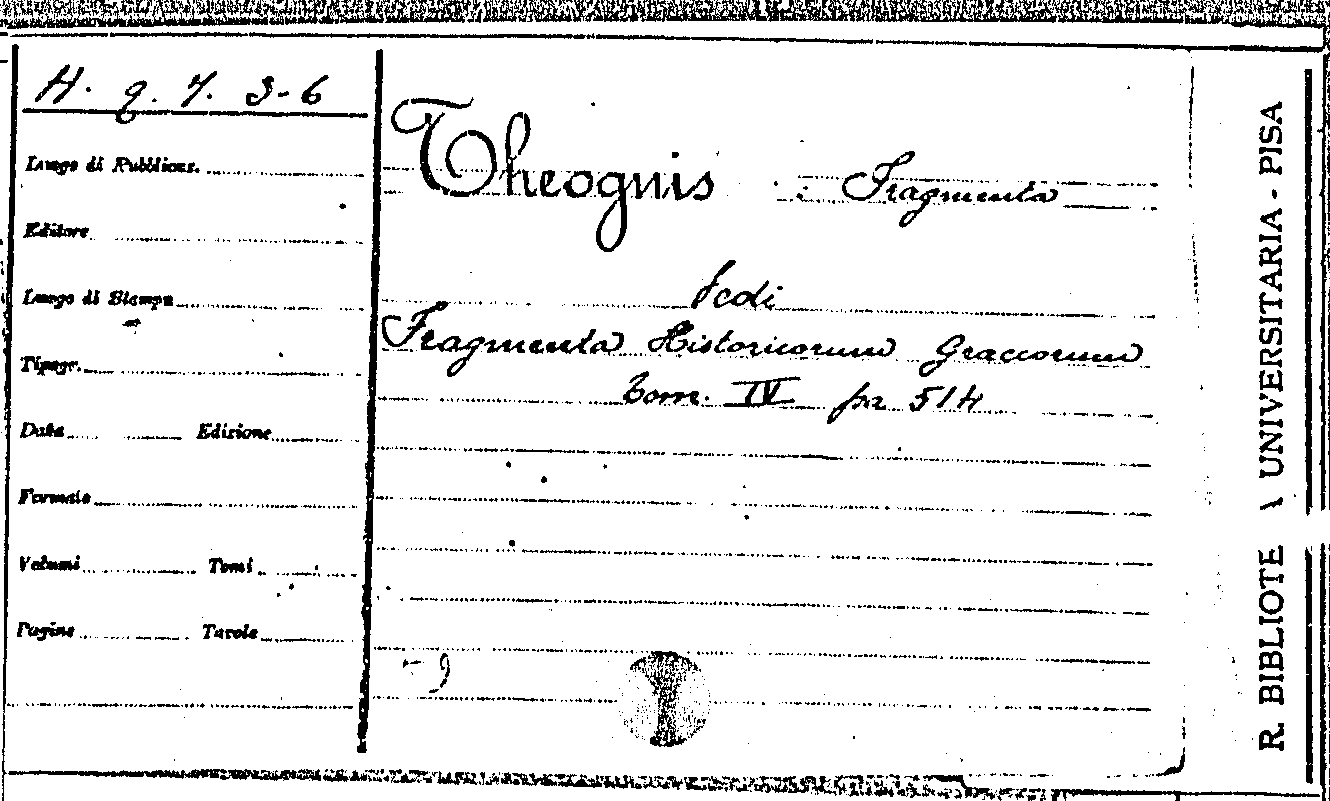 H. q. 7. 3-6
Luogo di Pubblicaz.
Editore
Luogo di Stampa
Tipogr.
Data Edizione
Formato
Volumi Tomi
Pagine Tavole
Theognis : Fragmenta
Vedi
Fragmenta Historicorum Graecorum
Tom. IV pa 514
9
R. BIBLIOTE \ UNIVERSITARIA - PISA